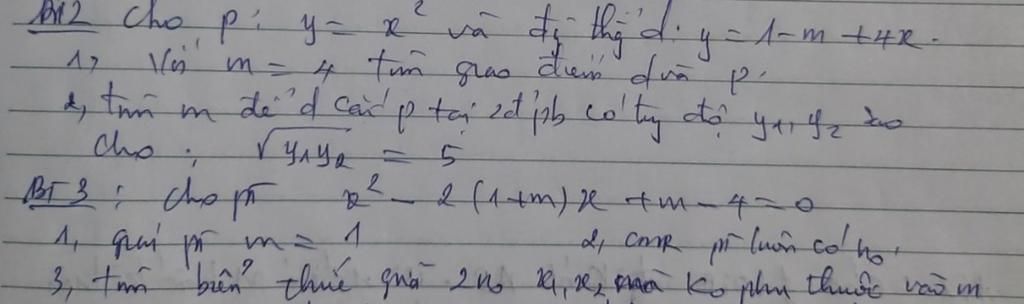 BT2 Cho p: y = x² và đg thg d: y = 1-m+4x.
1, Với m = 4 tìm giao điểm d và p.
2, tìm m để d cắt p tại 2đ pb có tg độ y₁, y₂ sao
cho : √y₁y₂ = 5
BT3 : cho pt x² - 2(1+m)x + m - 4 = 0
1, giải pt m = 1 2, CMR pt luôn có no.
3, tìm biểu thức giữa 2no x₁, x₂ mà ko phụ thuộc vào m